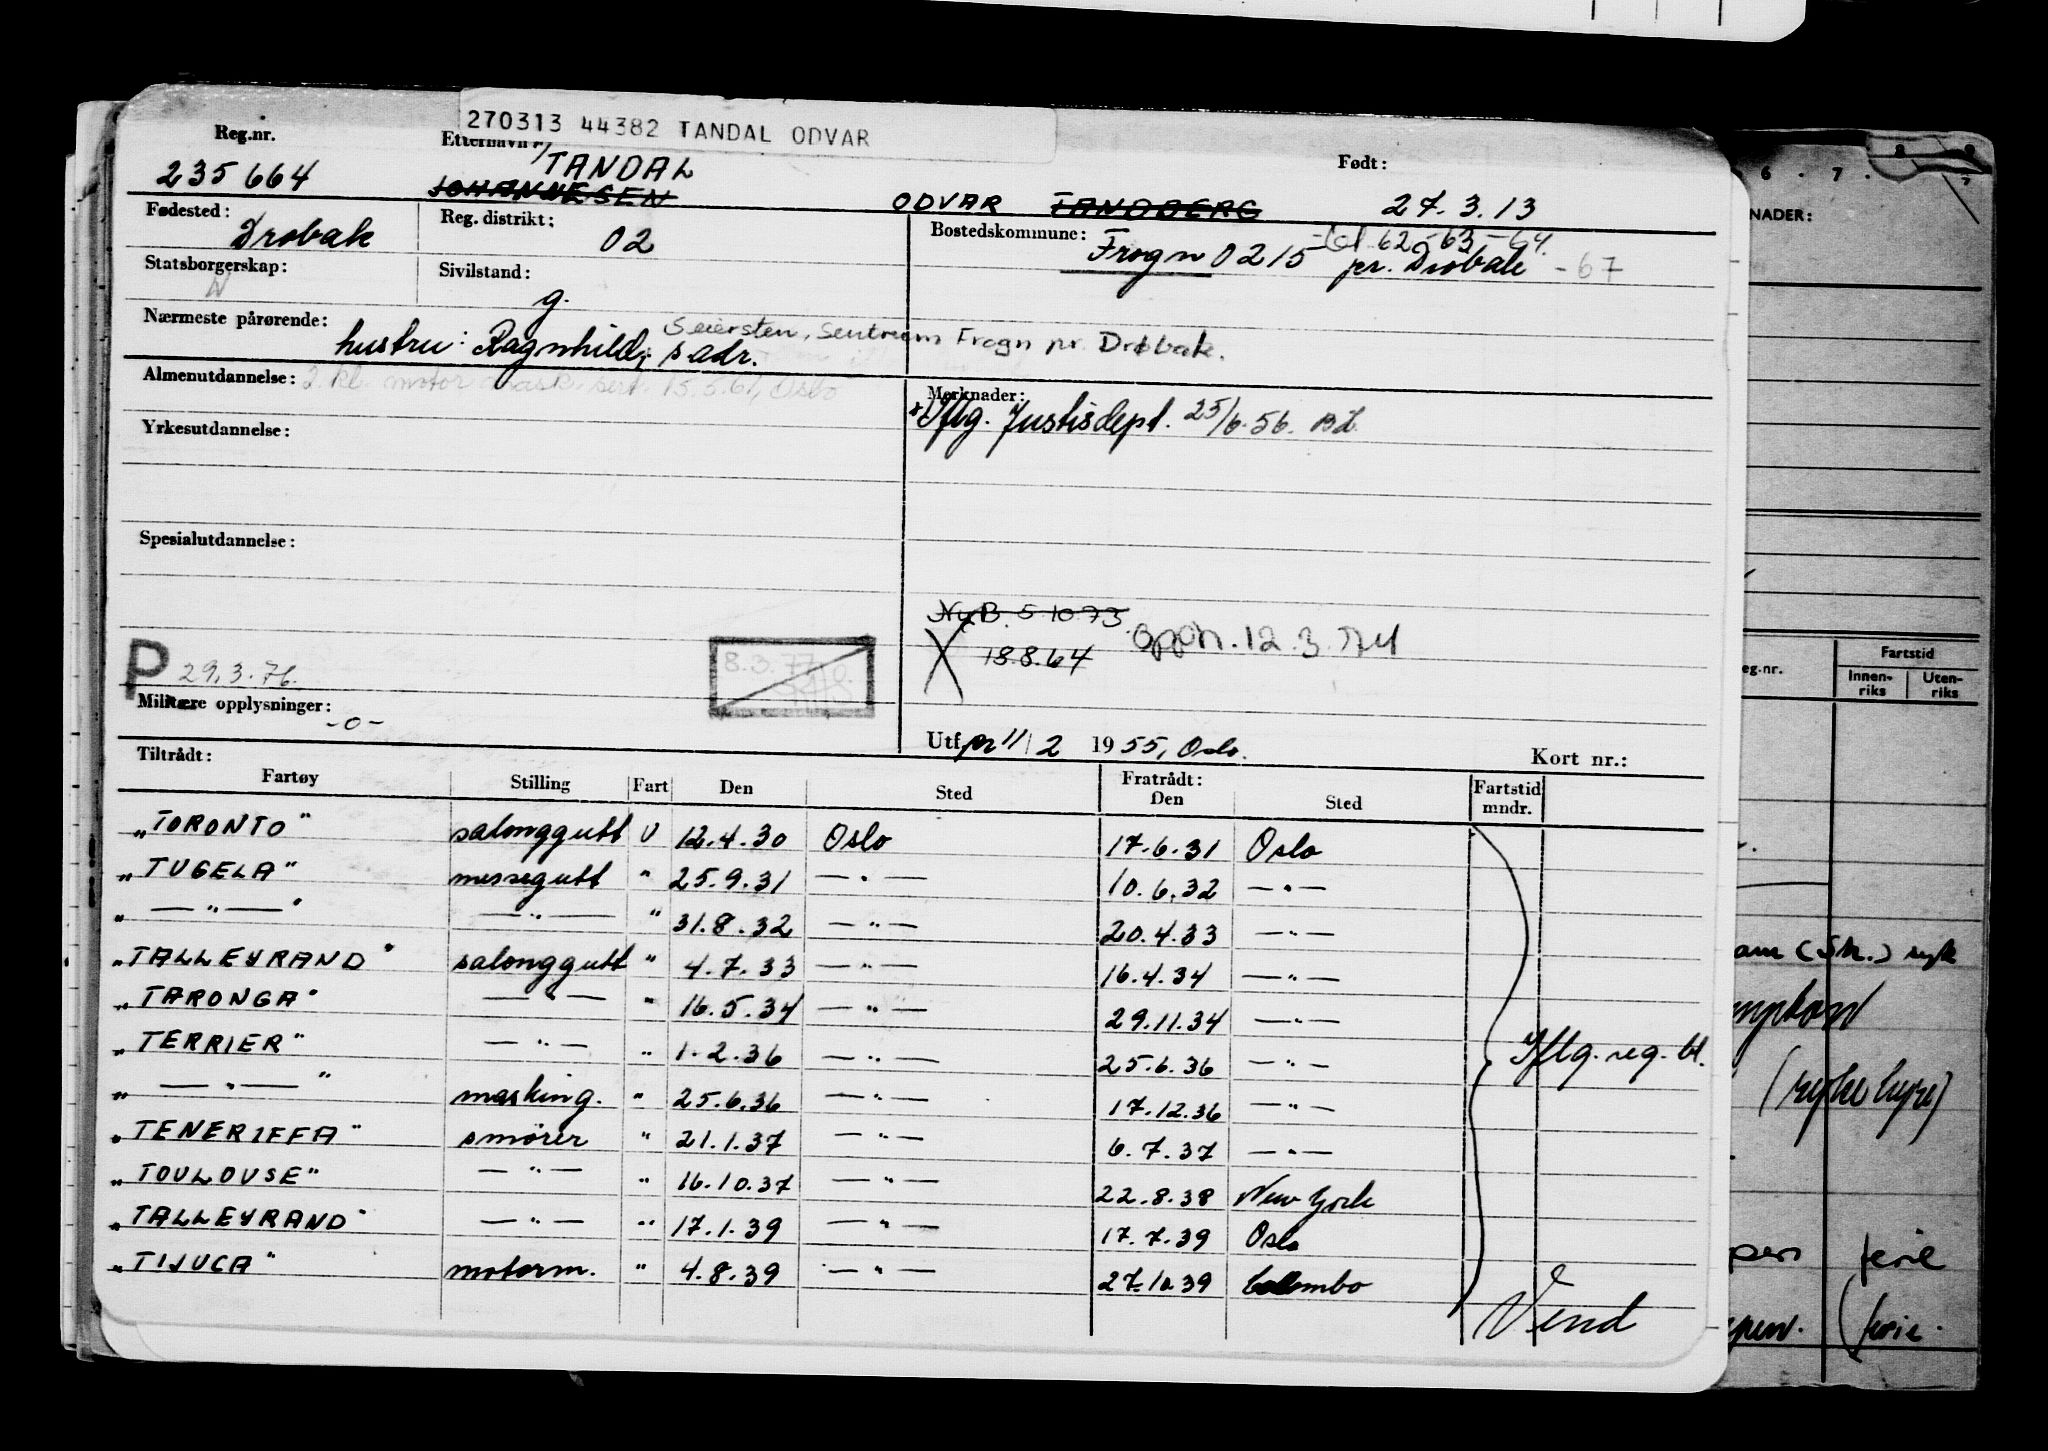 270313 44382 TANDAL ODVAR
Reg.nr. Etternavn: Født:
235664 TANDAL
JOHANNESEN ODVAR TANDBERG 27.3.13
Fødested: Drøbak Reg. distrikt: 02 Bostedskommune: Frogn 0215 -61-62-63-64
pr. Drøbak -67
Statsborgerskap: N Sivilstand: g.
Nærmeste pårørende: hustru: Ragnhild, s adr. Seiersten, Sentrum Frogn pr. Drøbak.
Almenutdannelse: 2. kl. motor mask. sert. 15.5.61, Oslo Merknader:
Iflg. Justisdept. 25/6.56.
Yrkesutdannelse:
Spesialutdannelse:
NyB. 5.10.73 oppn. 12.3.74
X 18.8.64
P 29.3.76. 8.3.77
Militære opplysninger: -o-
Utf. pr 11/2 1955, Oslo. Kort nr.:
Tiltrådt: Fratrådt:
Fartøy Stilling Fart Den Sted Den Sted Fartstid mndr.
"TORONTO" salonggutt U 12.4.30 Oslo 17.6.31 Oslo
"TUGELA" messegutt " 25.9.31 — " — 10.6.32 — " —
" — " — " — " — " 31.8.32 — " — 20.4.33 — " —
"TALLEYRAND" salonggutt " 4.7.33 — " — 16.4.34 — " —
"TARONGA" — " — " 16.5.34 — " — 29.11.34 — " —
"TERRIER" — " — " 1.2.36 — " — 25.6.36 — " — Iflg. reg. bl.
" — " — " masking. " 25.6.36 — " — 17.12.36 — " —
"TENERIFFA" smører " 21.1.37 — " — 6.7.37 — " —
"TOULOUSE" — " — " 16.10.37 — " — 22.8.38 New York
"TALLEYRAND" — " — " 17.1.39 — " — 17.7.39 Oslo
"TIJUCA" motorm. " 4.8.39 — " — 27.10.39 Colombo
Vend
6 . 7 .
NADER:
eg.nr. Fartstid
Innen-riks Uten-riks
am (Sk.) syk
mpton
(syke hyre)
ferie
ferie.